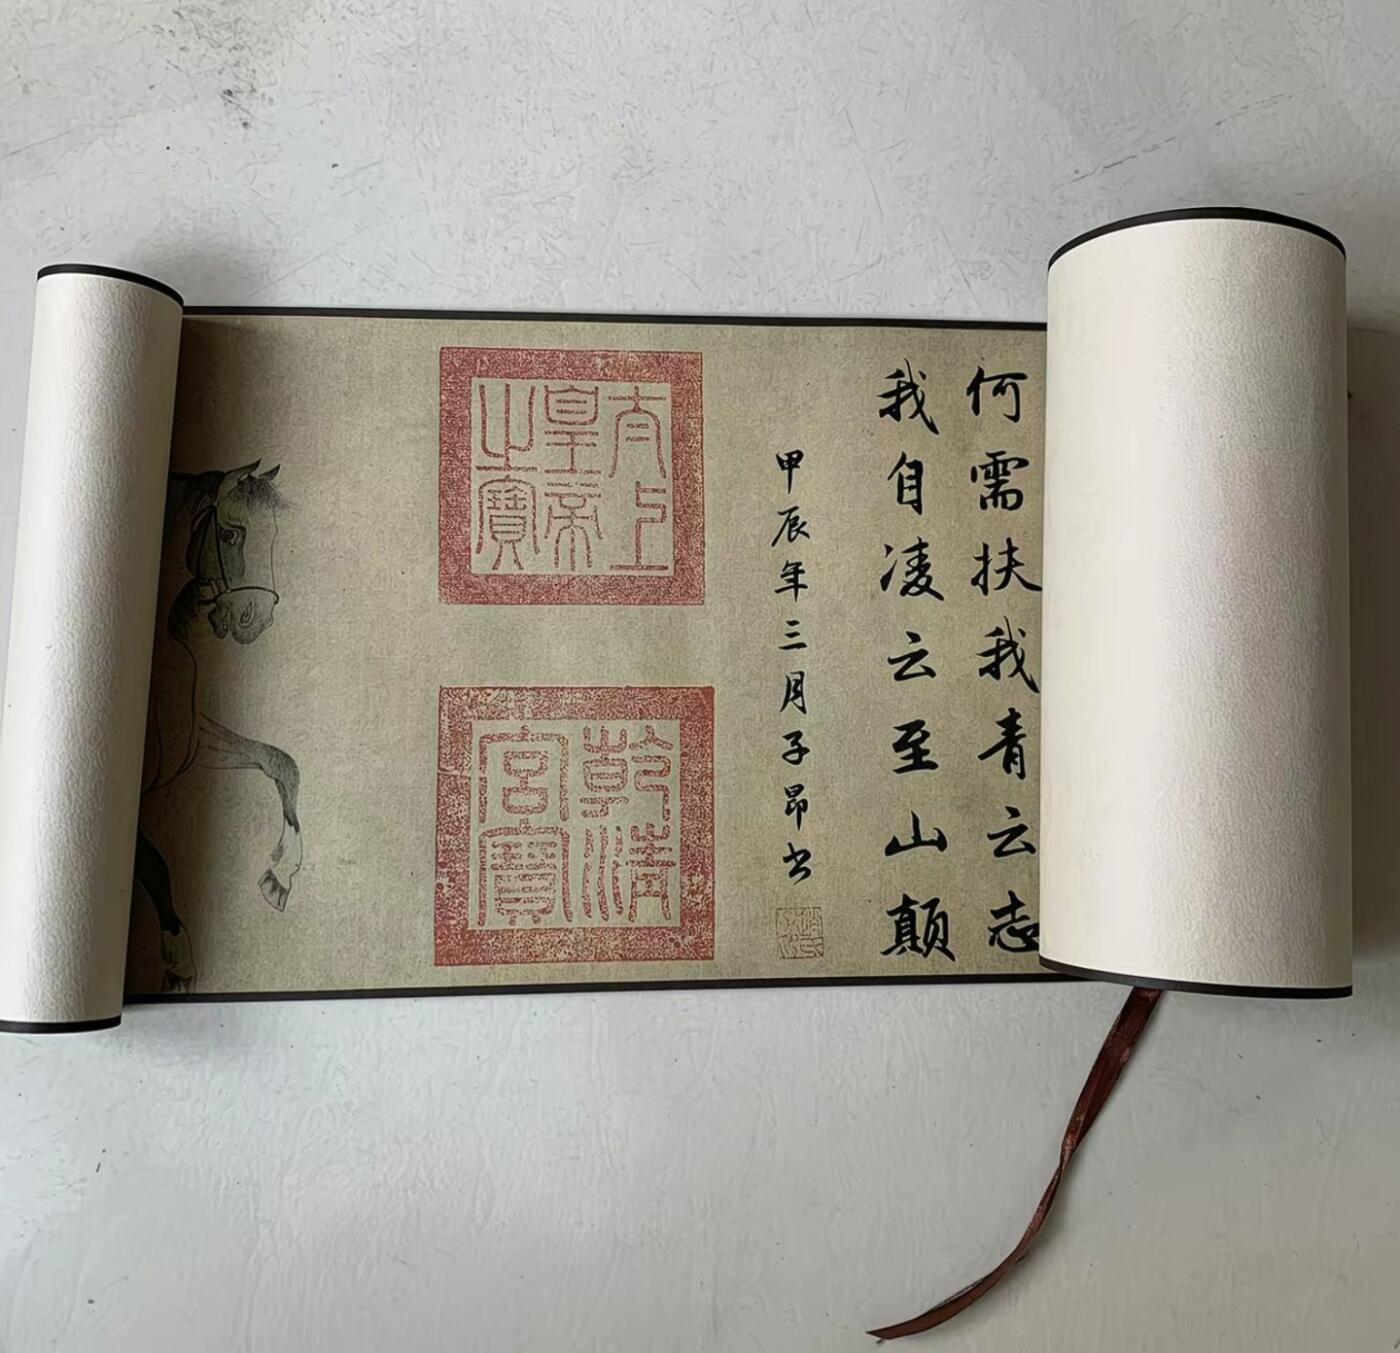 何需扶我青云志
我自凌云至山颠
甲辰年三月子昂书
太上皇帝之寶
乾清宮寶